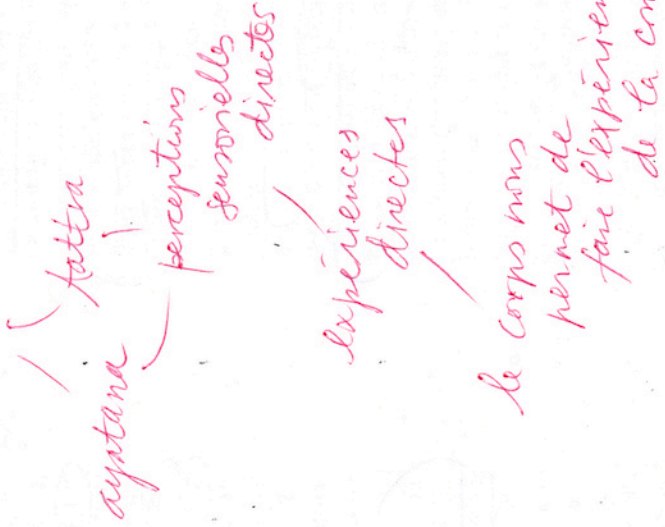 ayatana
tattva
perceptions
sensorielles
directes
expériences
directes
le corps nous
permet de
faire l'expérien
de la con